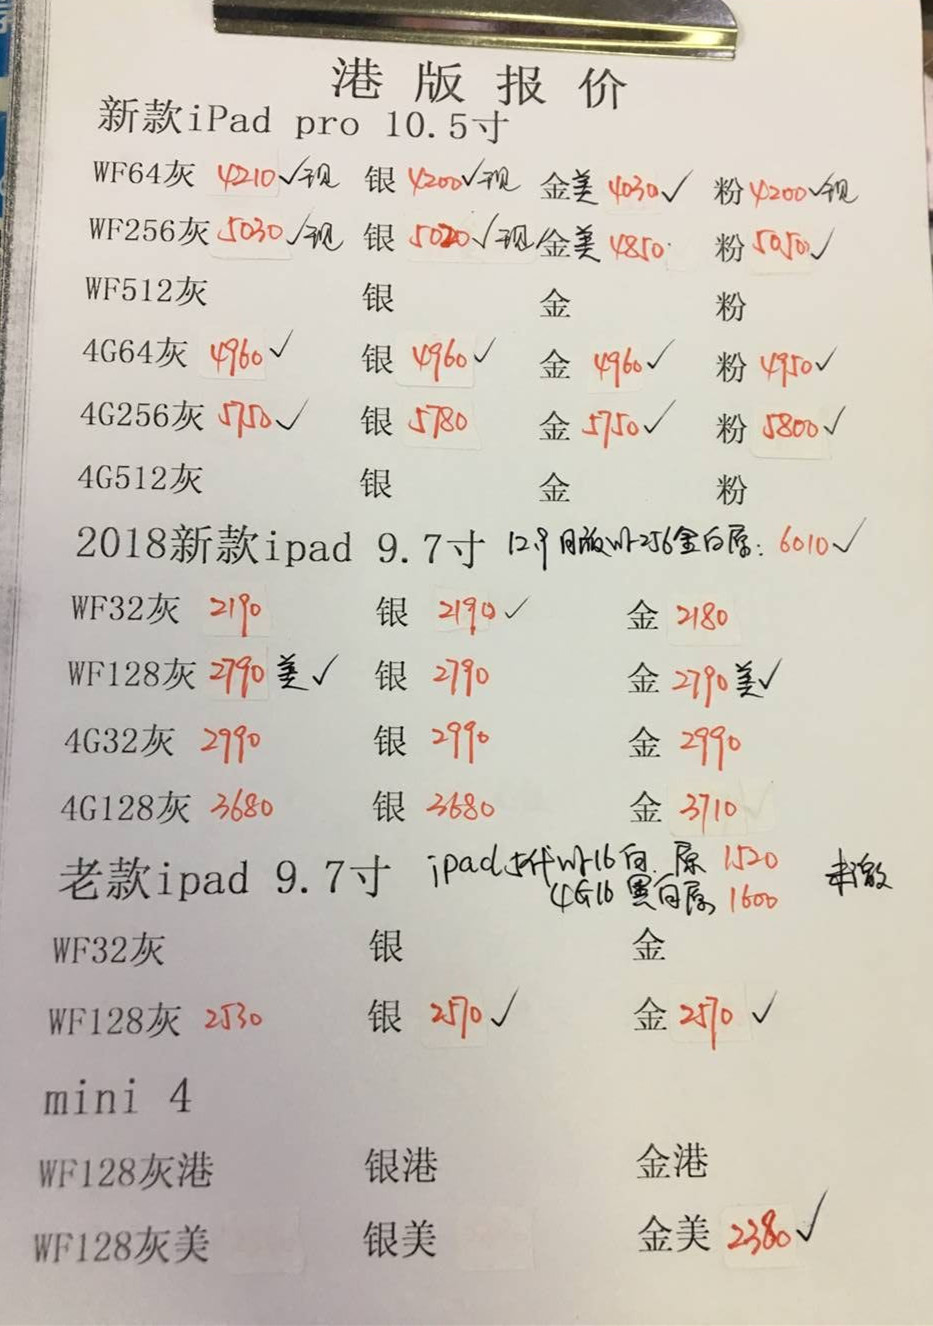 港版报价
新款iPad pro 10.5寸
WF64灰 4210✓现 银 4200✓现 金美 4030✓ 粉 4200✓现
WF256灰 5030✓现 银 5020✓现 金美 4850 粉 5050✓
WF512灰 银 金 粉
4G64灰 4960✓ 银 4960✓ 金 4960✓ 粉 4950✓
4G256灰 5750✓ 银 5780 金 5750✓ 粉 5800✓
4G512灰 银 金 粉
2018新款ipad 9.7寸 12.9 日版Wf256金白原: 6010✓
WF32灰 2190 银 2190✓ 金 2180
WF128灰 2790美✓ 银 2790 金 2790美✓
4G32灰 2990 银 2990 金 2990
4G128灰 3680 银 3680 金 3710
老款ipad 9.7寸 ipad5代Wf16白.原 1520 未激
4G16黑白原 1600
WF32灰 银 金
WF128灰 2530 银 2570✓ 金 2570✓
mini 4
WF128灰港 银港 金港
WF128灰美 银美 金美 2380✓